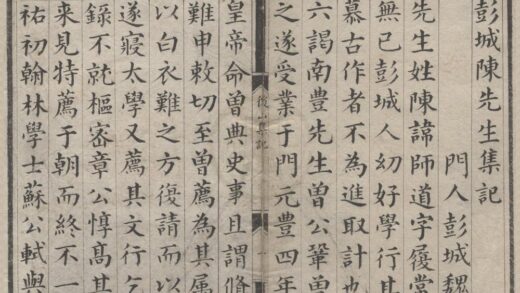 彭城陳先生集記
門人彭城魏
先生姓陳諱師道字履常
無已彭城人幼好學行其
慕古作者不為進取計也
六謁南豐先生曾公鞏曾
之遂受業于門元豐四年
後山集記
一
皇帝命曾典史事且謂脩
難申敕切至曾薦為其屬
以白衣難之方復請而以
遂寢太學又薦其文行乞
錄不就樞密章公惇高其
來見特薦于朝而終不一
祐初翰林學士蘇公軾與